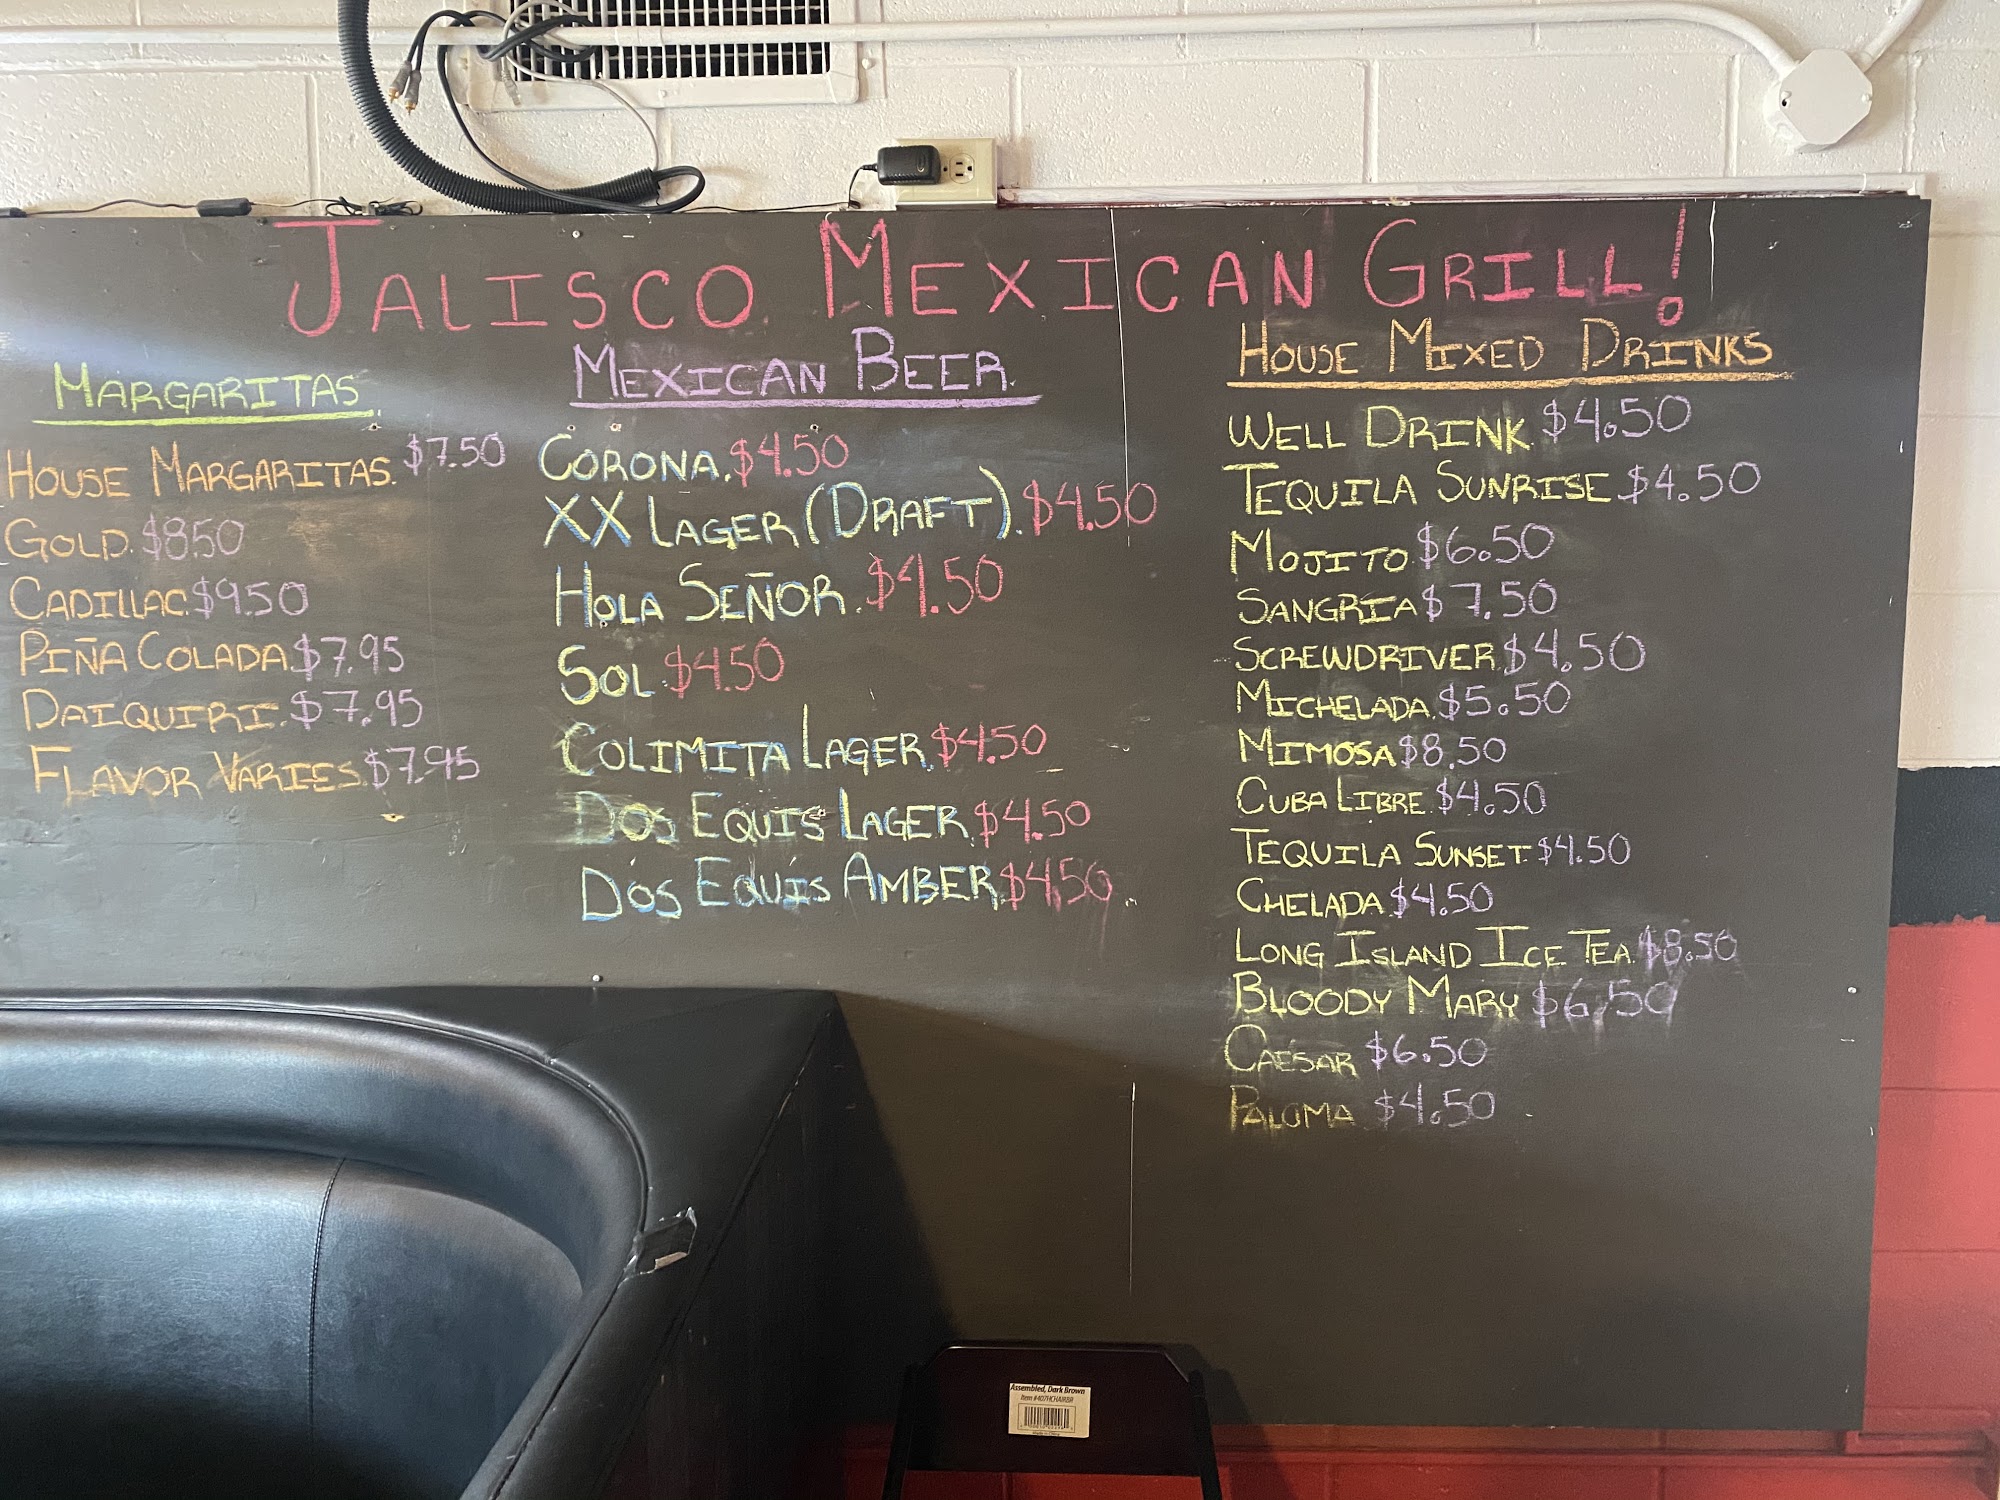 JALISCO MEXICAN GRILL!
MARGARITAS
HOUSE MARGARITAS. $7.50
GOLD. $8.50
CADILLAC. $9.50
PIÑA COLADA. $7.95
DAIQUIRI. $7.95
FLAVOR VARIES. $7.95
MEXICAN BEER.
CORONA. $4.50
XX LAGER (DRAFT). $4.50
HOLA SEÑOR. $4.50
SOL $4.50
COLIMITA LAGER. $4.50
DOS EQUIS LAGER. $4.50
DOS EQUIS AMBER. $4.50
HOUSE MIXED DRINKS
WELL DRINK. $4.50
TEQUILA SUNRISE $4.50
MOJITO $6.50
SANGRIA $7.50
SCREWDRIVER $4.50
MICHELADA. $5.50
MIMOSA $8.50
CUBA LIBRE. $4.50
TEQUILA SUNSET. $4.50
CHELADA $4.50
LONG ISLAND ICE TEA. $8.50
BLOODY MARY $6.50
CAESAR $6.50
PALOMA $4.50
Assembled, Dark Brown
Item #407HCHAIRBR
Made in China